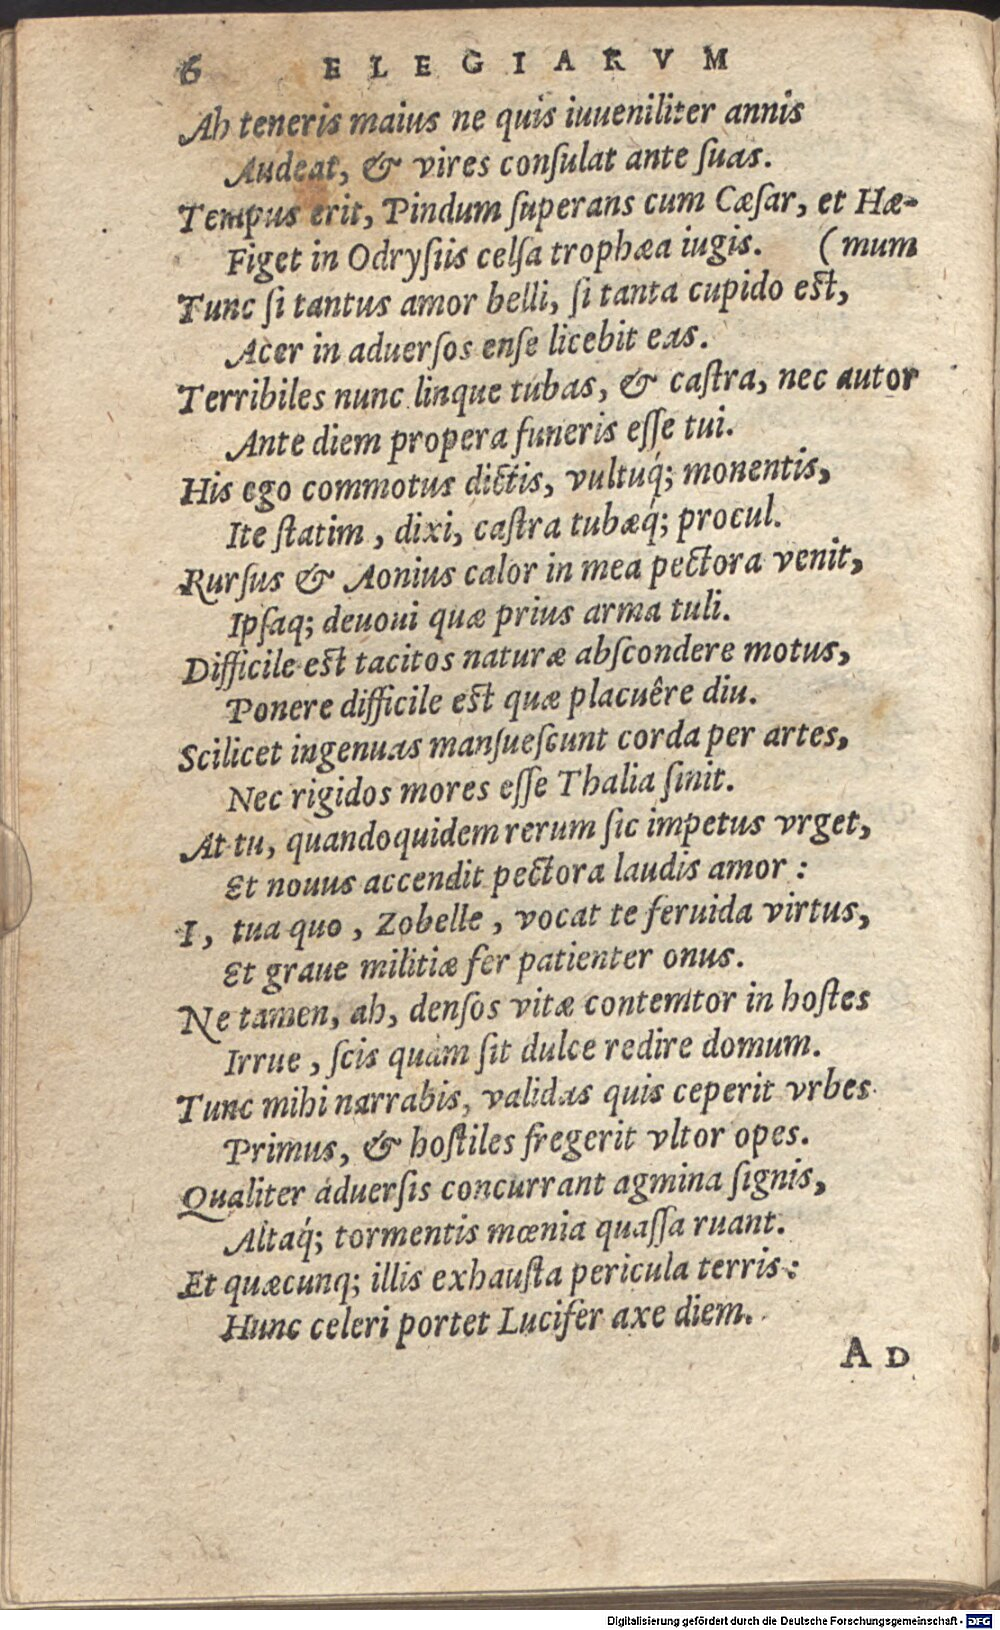 6 ELEGIARVM
Ah teneris maius ne quis iuueniliter annis
Audeat, & vires conſulat ante ſuas.
Tempus erit, Pindum ſuperans cum Cæſar, et Hæ-
Figet in Odryſiis celſa trophæa iugis. (mum
Tunc ſi tantus amor belli, ſi tanta cupido eſt,
Acer in aduerſos enſe licebit eas.
Terribiles nunc linque tubas, & caſtra, nec autor
Ante diem propera funeris eſſe tui.
His ego commotus dictis, vultuq́; monentis,
Ite ſtatim, dixi, caſtra tubæq́; procul.
Rurſus & Aonius calor in mea pectora venit,
Ipſaq; deuoui quæ prius arma tuli.
Difficile eſt tacitos naturæ abſcondere motus,
Ponere difficile eſt quæ placuêre diu.
Scilicet ingenuas manſueſcunt corda per artes,
Nec rigidos mores eſſe Thalia ſinit.
At tu, quandoquidem rerum ſic impetus vrget,
Et nouus accendit pectora laudis amor:
I, tua quo, Zobelle, vocat te feruida virtus,
Et graue militiæ fer patienter onus.
Ne tamen, ah, denſos vitæ contemtor in hoſtes
Irrue, ſcis quàm ſit dulce redire domum.
Tunc mihi narrabis, validas quis ceperit vrbes
Primus, & hoſtiles fregerit vltor opes.
Qualiter aduerſis concurrant agmina ſignis,
Altaq́; tormentis mœnia quaſſa ruant.
Et quæcunq; illis exhauſta pericula terris:
Hunc celeri portet Lucifer axe diem.
AD
Digitalisierung gefördert durch die Deutsche Forschungsgemeinschaft - DFG